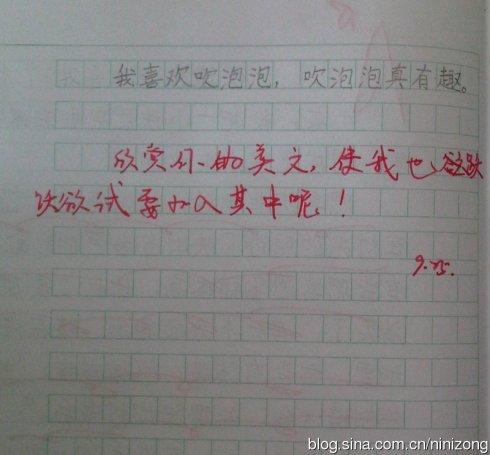 我喜欢吹泡泡，吹泡泡真有趣。
欣赏你的美文，使我也跃跃
欲试要加入其中呢！
9.25.
blog.sina.com.cn/ninizong